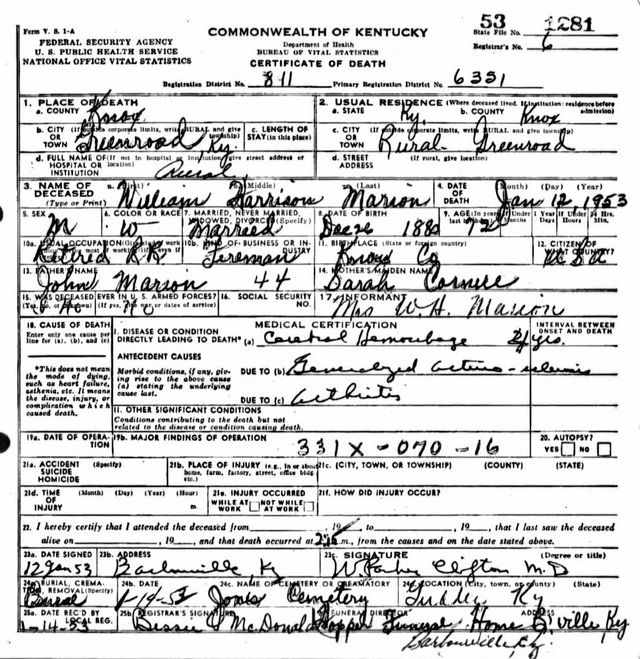 Form V. S. 1-A
FEDERAL SECURITY AGENCY
U. S. PUBLIC HEALTH SERVICE
NATIONAL OFFICE VITAL STATISTICS
COMMONWEALTH OF KENTUCKY
Department of Health
BUREAU OF VITAL STATISTICS
CERTIFICATE OF DEATH
53 1281
State File No.
Registrar's No. 6
Registration District No. 811 Primary Registration District No. 6331
1. PLACE OF DEATH
a. COUNTY Knox
2. USUAL RESIDENCE (Where deceased lived. If institution: residence before admission)
a. STATE Ky. b. COUNTY Knox
b. CITY OR TOWN (If outside corporate limits, write RURAL and give township) Greenroad, Ky.
c. LENGTH OF STAY (in this place)
c. CITY OR TOWN (If outside corporate limits, write RURAL and give township) Rural - Greenroad
d. FULL NAME OF HOSPITAL OR INSTITUTION (If not in hospital or institution, give street address or location) Rural
d. STREET ADDRESS (If rural, give location)
3. NAME OF DECEASED (Type or Print) a. (First) William b. (Middle) Harrison c. (Last) Marion
4. DATE OF DEATH (Month) (Day) (Year) Jan 12, 1953
5. SEX M
6. COLOR OR RACE W
7. MARRIED, NEVER MARRIED, WIDOWED, DIVORCED (Specify) Married
8. DATE OF BIRTH Dec 26 1880
9. AGE 72 If Under 1 Year If Under 24 Hrs.
10a. USUAL OCCUPATION Retired R.R.
10b. KIND OF BUSINESS OR INDUSTRY
11. BIRTHPLACE (State or foreign country) Knox Co
12. CITIZEN OF WHAT COUNTRY?
13. FATHER'S NAME John Marion 44
14. MOTHER'S MAIDEN NAME Sarah
15. WAS DECEASED EVER IN U. S. ARMED FORCES? (If yes, give war or dates of service) No
16. SOCIAL SECURITY NO.
17. INFORMANT Mrs W. H. Marion
18. CAUSE OF DEATH
Enter only one cause per line for (a), (b), and (c)
MEDICAL CERTIFICATION
INTERVAL BETWEEN ONSET AND DEATH
I. DISEASE OR CONDITION DIRECTLY LEADING TO DEATH* (a) Hemorrhage yrs.
*This does not mean the mode of dying, such as heart failure, asthenia, etc. It means the disease, injury, or complication which caused death.
ANTECEDENT CAUSES
Morbid conditions, if any, giving rise to the above cause (a) stating the underlying cause last.
DUE TO (b) Generalized
DUE TO (c) Arthritis
II. OTHER SIGNIFICANT CONDITIONS
Conditions contributing to the death but not related to the disease or condition causing death.
19a. DATE OF OPERATION
19b. MAJOR FINDINGS OF OPERATION 331X-070-16
20. AUTOPSY?
YES NO
21a. ACCIDENT SUICIDE HOMICIDE (Specify)
21b. PLACE OF INJURY (e.g., in or about home, farm, factory, street, office bldg., etc.)
21c. (CITY, TOWN, OR TOWNSHIP) (COUNTY) (STATE)
21d. TIME OF INJURY (Month) (Day) (Year) (Hour) m.
21e. INJURY OCCURRED WHILE AT WORK NOT WHILE AT WORK
21f. HOW DID INJURY OCCUR?
22. I hereby certify that I attended the deceased from , 19 to , 19 , that I last saw the deceased
alive on , 19 , and that death occurred at m., from the causes and on the date stated above.
23a. DATE SIGNED 12 Jan 53
23b. ADDRESS Barbourville Ky
23c. SIGNATURE (Degree or title) W Parker Clifton M.D
24a. BURIAL, CREMATION, REMOVAL (Specify) Burial
24b. DATE 1-14-53
24c. NAME OF CEMETERY OR CREMATORY Jones Cemetery
24d. LOCATION (City, town, or county) (State) Ky
25a. DATE REC'D BY LOCAL REG. 1-14-53
25b. REGISTRAR'S SIGNATURE Bessie McDonald
FUNERAL DIRECTOR Hopper Funeral Home B'ville Ky
Barbourville, Ky.